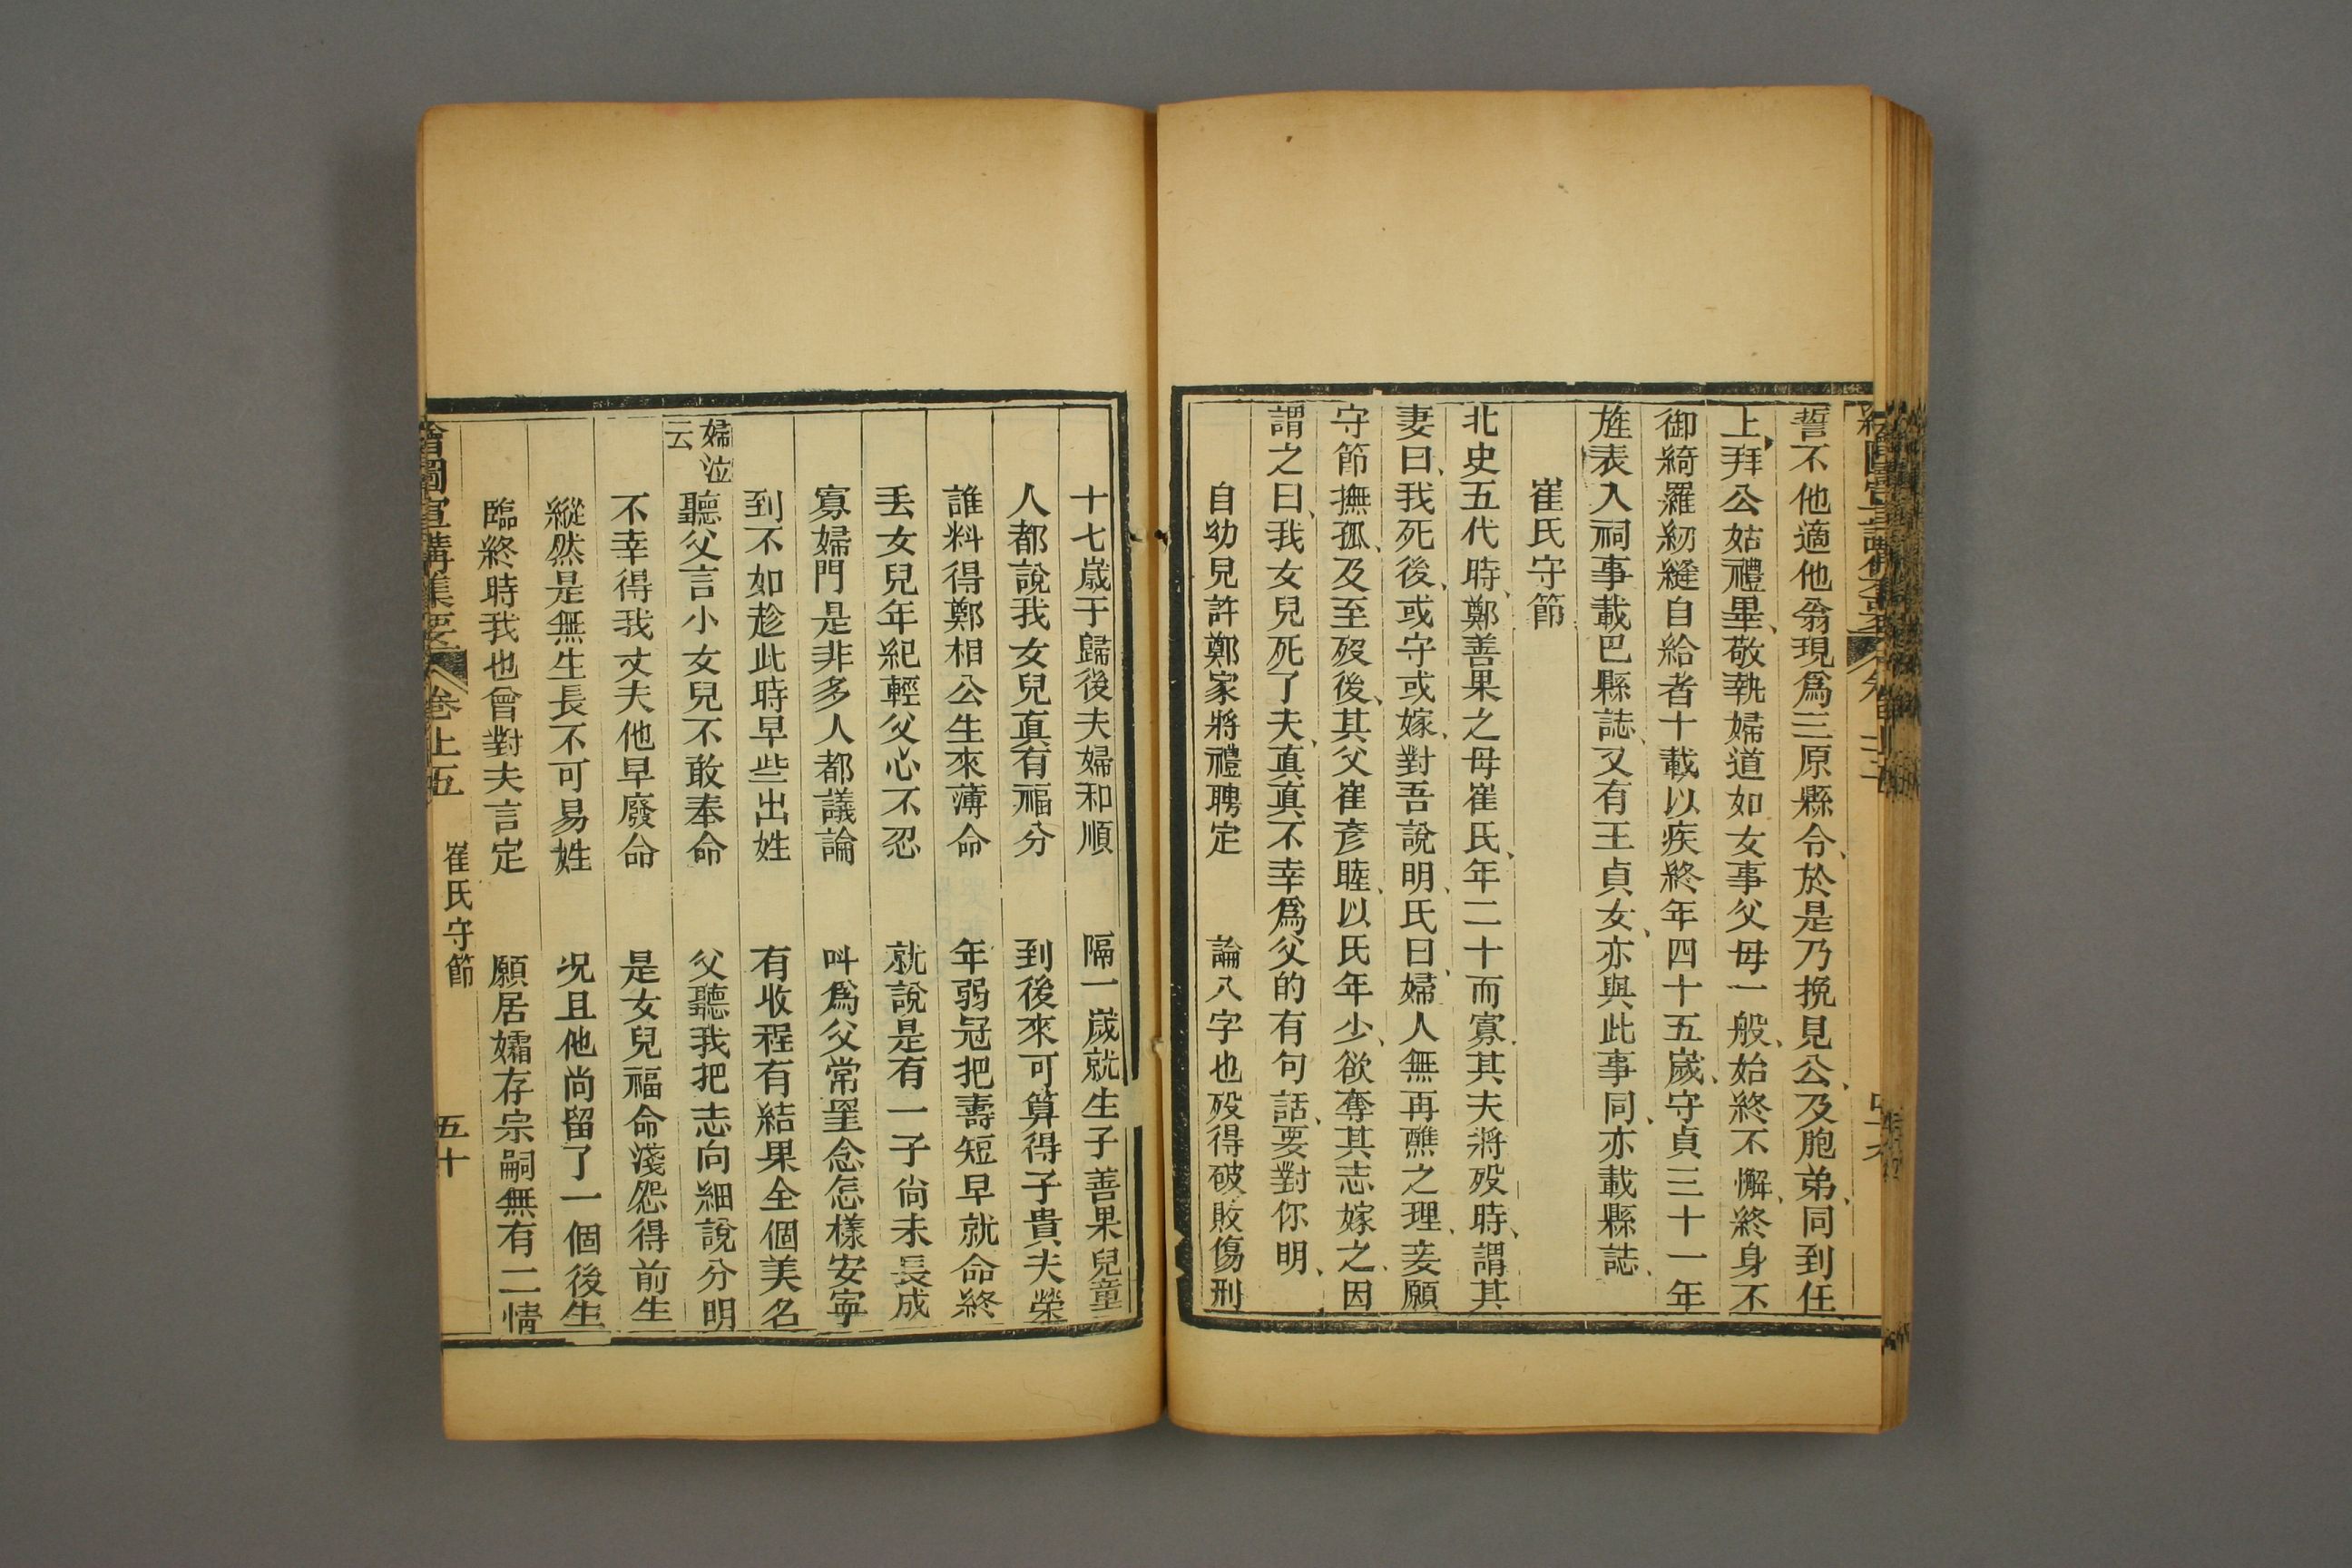 誓不他適他翁現為三原縣令、於是乃挽見公、及胞弟、同到任
上、拜公姑禮畢、敬執婦道如女事父母一般、始終不懈、終身不
御綺羅紉縫自給者十載以疾終年四十五歲、守貞三十一年
旌表入祠事載巴縣誌、又有王貞女、亦與此事同、亦載縣誌、
崔氏守節
北史五代時、鄭善果之母崔氏、年二十而寡、其夫將殁時、謂其
妻曰、我死後、或守或嫁、對吾說明、氏曰、婦人無再醮之理、妾願
守節撫孤、及至殁後、其父崔彥睦、以氏年少、欲奪其志嫁之、因
謂之曰、我女兒死了夫、真真不幸、為父的有句話、要對你明、
自幼兒許鄭家將禮聘定　論八字也殁得破敗傷刑
十七歲于歸後夫婦和順　隔一歲就生子善果兒童
人都說我女兒真有福分　到後來可算得子貴夫榮
誰料得鄭相公生來薄命　年弱冠把壽短早就命終
丢女兒年紀輕父心不忍　就說是有一子尚未長成
寡婦門是非多人都議論　叫為父常罣念怎樣安寧
到不如趁此時早些出姓　有收程有結果全個美名
婦泣云　聽父言小女兒不敢奉命　父聽我把志向細說分明
不幸得我丈夫他早廢命　是女兒福命淺怨得前生
縱然是無生長不可易姓　况且他尚留了一個後生
臨終時我也曾對夫言定　願居孀存宗嗣無有二情
繪圖宣講集要　卷上五　崔氏守節　五十